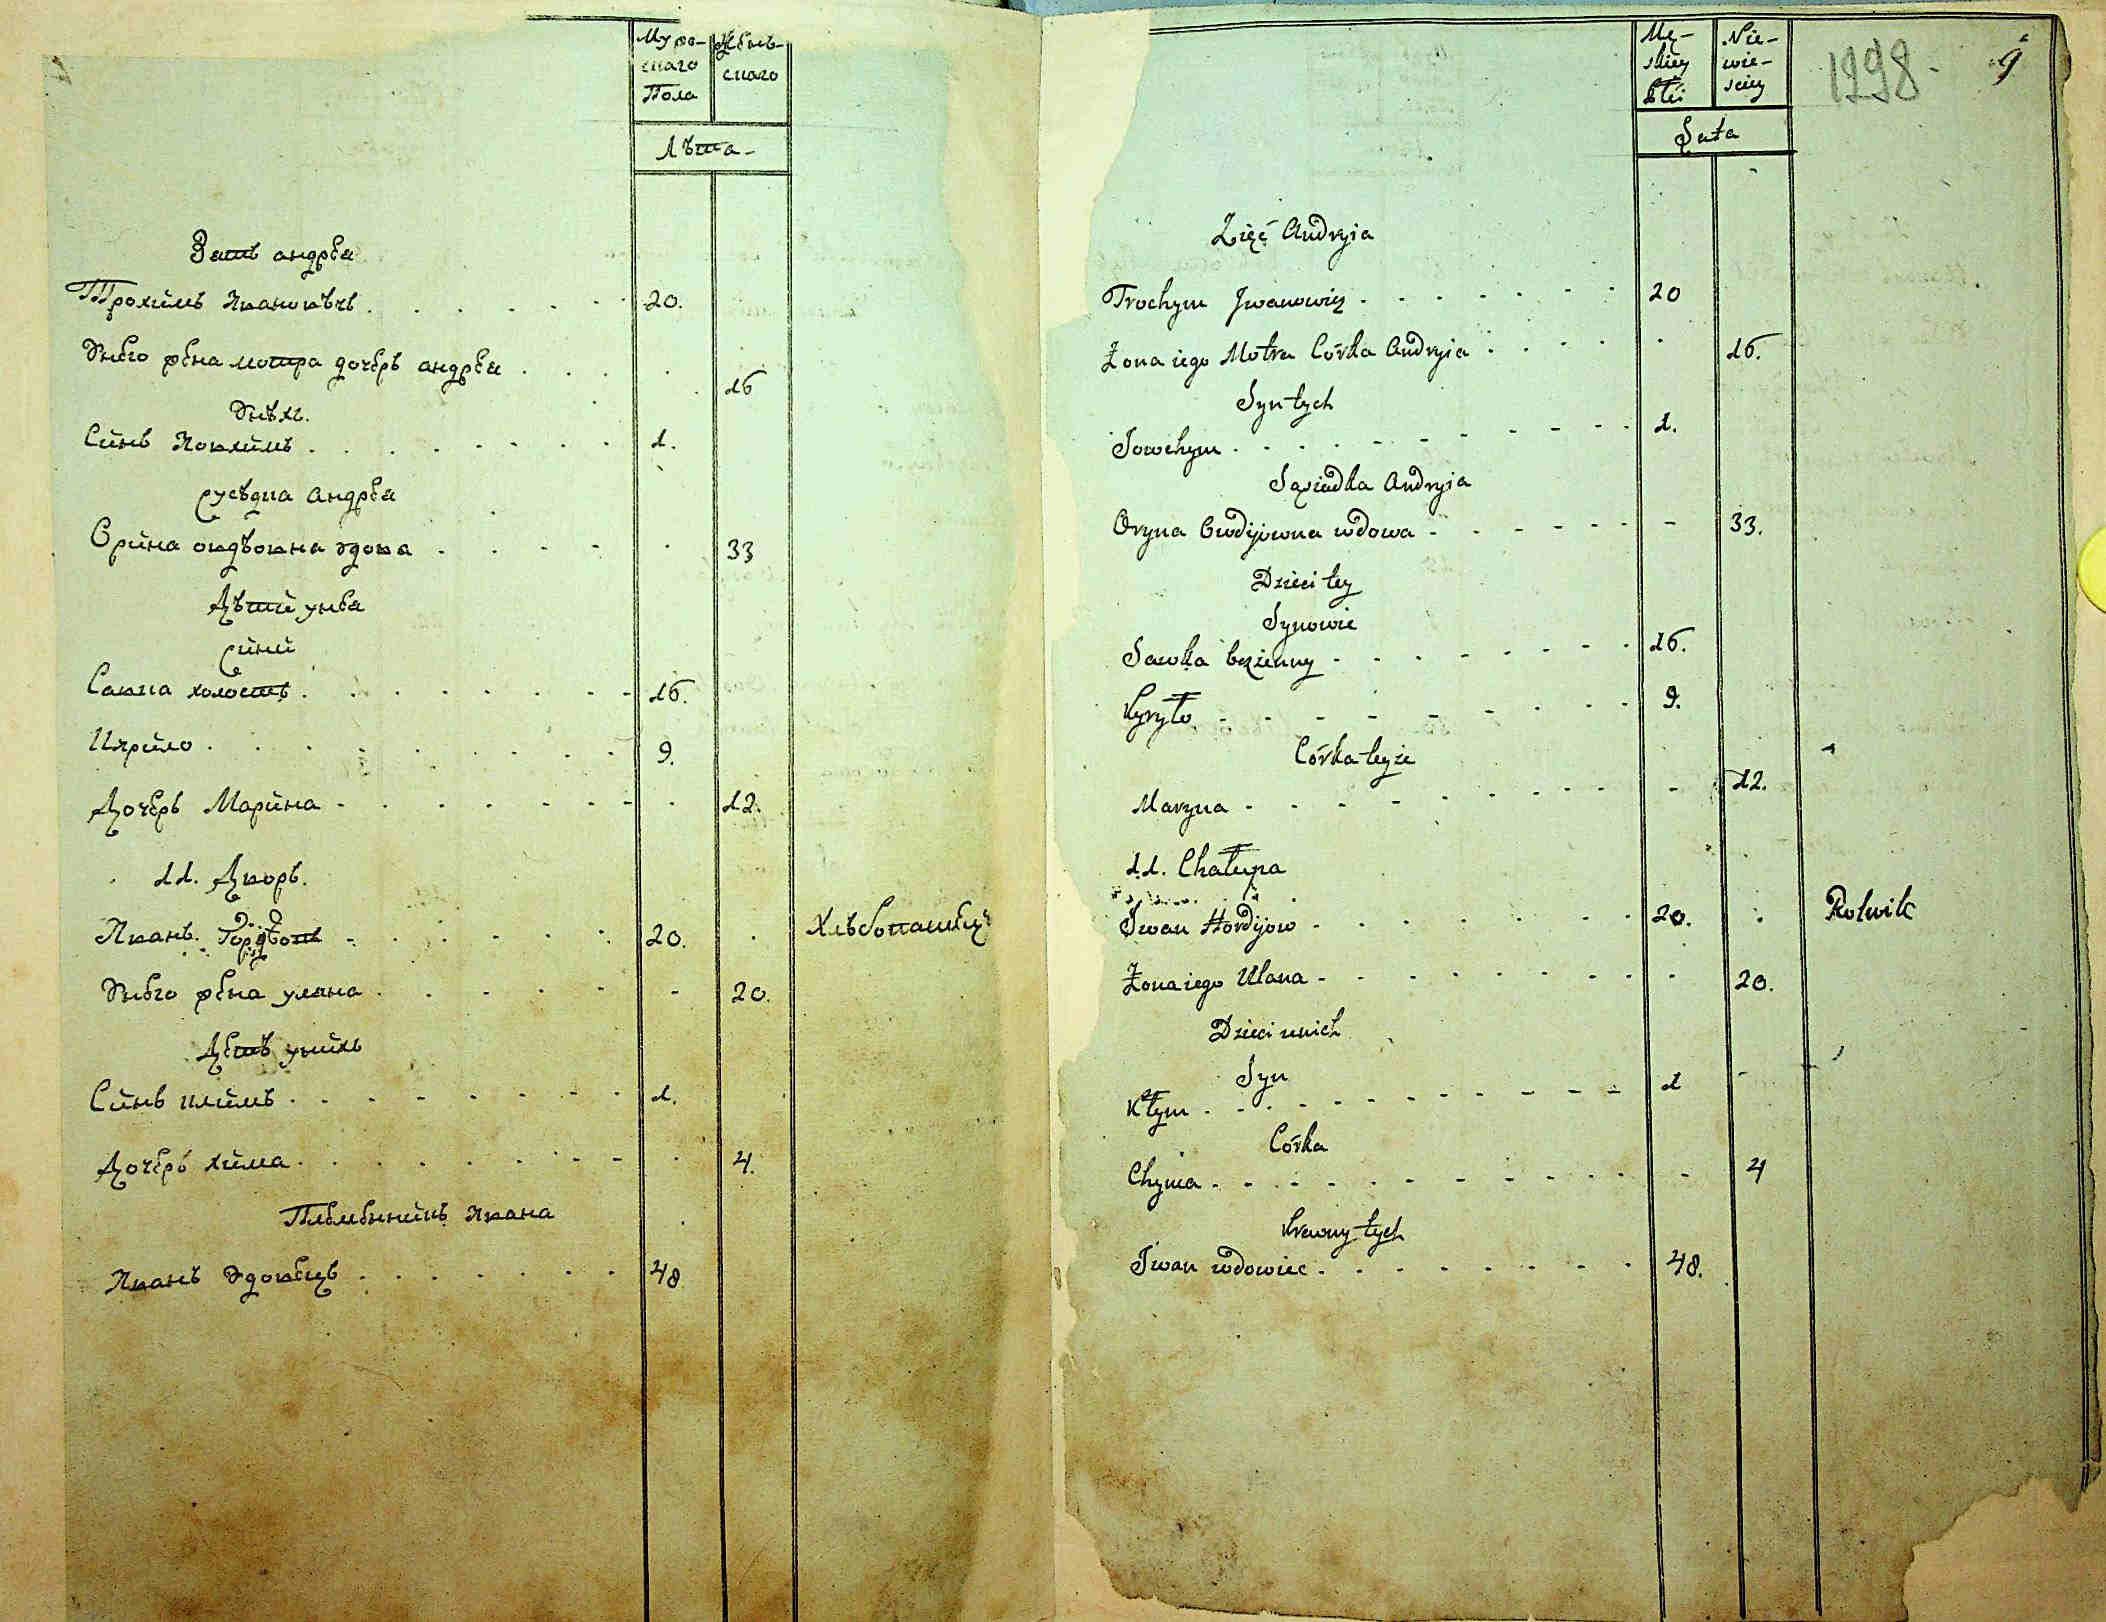 Муже-
скаго
Пола
Жень-
скаго
Лѣта
Зять андрѣа
Трохимъ Ивановъчъ 20.
Унего жена мотра дочерь андрѣа 16
Унѣхъ
Синъ Иовхимъ 1.
сусѣдка андрѣа
Орина овдѣовна вдова 33
Дѣти унеа
сини
Савка холостъ 16.
Кирило 9.
Дочерь Марина 12.
11. Дворъ.
Иванъ Гордѣовъ 20. Хлѣбопашецъ
Унего жена улана 20.
Дети унихъ
Синъ климъ 1.
Дочерь хима 4.
Племенникъ Ивана
Иванъ Вдовецъ 48
Mę-
skiey
płći
Nie-
wie-
sciey
1298-
9
Łata
Zięć Andryia
Trochym Jwanowicz 20
Żona iego Motra Córka Andryia 16.
Syn tych
Jowchym 1.
Sąsiadka Andryia
Oryna Owdijowna wdowa 33.
Dzieci tey
Synowie
Sawka bezżenny 16.
Kyryło 9.
Córka teyże
Maryna 12.
11. Chałupa
Iwan Hordyiow 20. Rolnik
Żona iego Ulana 20.
Dzieci u nich
Syn
Kłym 1
Córka
Chyma 4
Krewny tych
Iwan wdowiec 48.